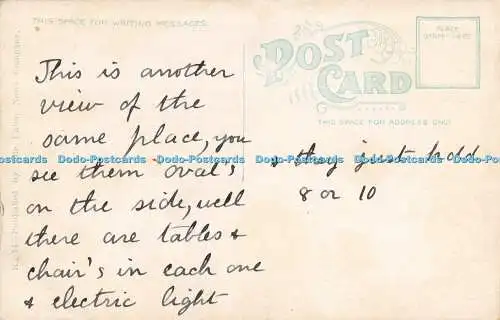 THIS SPACE FOR WRITING MESSAGES
POST CARD
PLACE
STAMP HERE
THIS SPACE FOR ADDRESS ONLY
This is another
view of the
same place, you
see them oval's
on the side, well
there are tables &
chair's in each one
& electric light
& they just hold
8 or 10
Dodo-Postcards Dodo-Postcards Dodo-Postcards Dodo-Postcards Dodo-Postcards Dodo-Postcards Dodo-Postcards